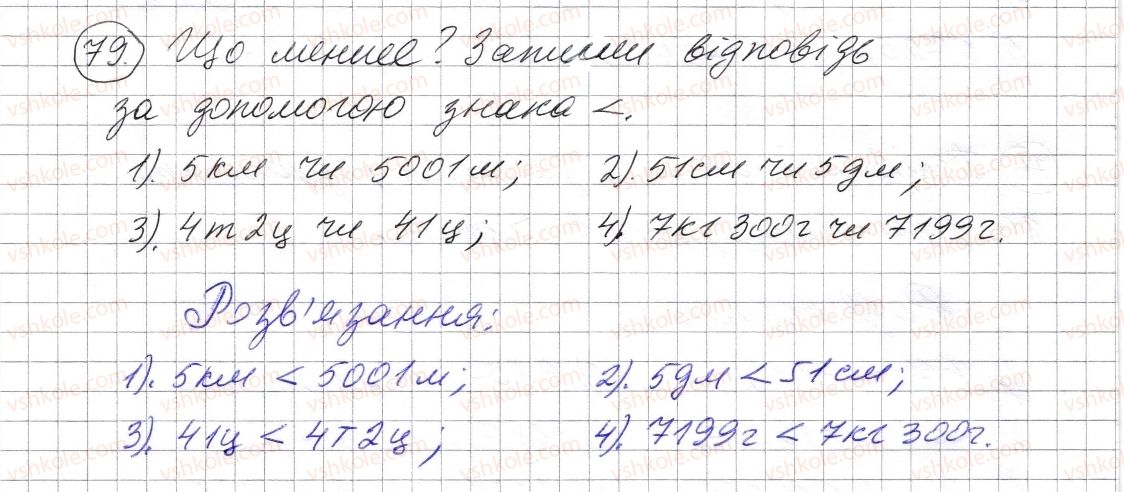 79. Що менше? Запиши відповідь
за допомогою знака <.
1). 5км чи 5001м; 2). 51см чи 5дм;
3). 4т 2ц чи 41ц; 4). 7кг 300г чи 7199г.
Розв'язання:
1). 5км < 5001м; 2). 5дм < 51см;
3). 41ц < 4т 2ц; 4). 7199г < 7кг 300г.